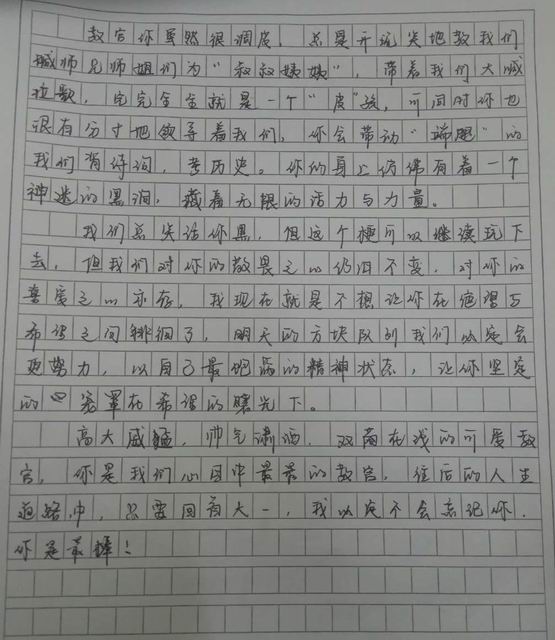 教官你虽然很调皮，总是开玩笑地教我们
喊师兄师姐们为“叔叔姨姨”，带着我们大喊
拉歌，完完全全就是一个“皮”孩，可同时你也
很有分寸地领导着我们，你会带动“瑞腿”的
我们背诗词，考历史。你的身上仿佛有着一个
神迷的黑洞，藏着无限的活力与力量。
我们总笑话你黑，但这个梗可以继续玩下
去，但我们对你的敬畏之心仍旧不变，对你的
喜爱之心亦存，我现在就是不想让你在绝望与
希望之间徘徊了，明天的方块队列我们必定会
更努力，以自己最饱满的精神状态，让你坚定
的 笼罩在希望的曙光下。
高大威猛，帅气潇洒，双商在线的可爱教
官，你是我们心目中最最的教官，往后的人生
道路中，只要回首大一，我必定不会忘记你，
你是最棒！